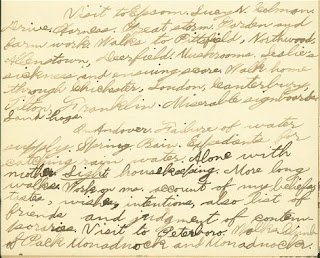 Visit to Epsom. Lucy N. Colman
Drive. Barnes. Great storm. Burden and
farm work. Walks. Pittsfield, Northwood,
Allenstown, Deerfield. Mushrooms. Leslie's
sickness and ensuing scare. Walk home
through Chichester, Loudon, Canterbury,
Tilton, Franklin. Miserable signboards
Sand hogs.
E. Andover. Failure of water
supply. Spring. Rain. Expedients for
catching rain water. Alone with
mother. Light housekeeping. More long
walks. Work on my account of my beliefs,
tastes, wishes, intentions, also list of
friends and judgment of contem-
poraries. Visit to Peterboro. Walks, climb
of Pack Monadnock and Monadnock.